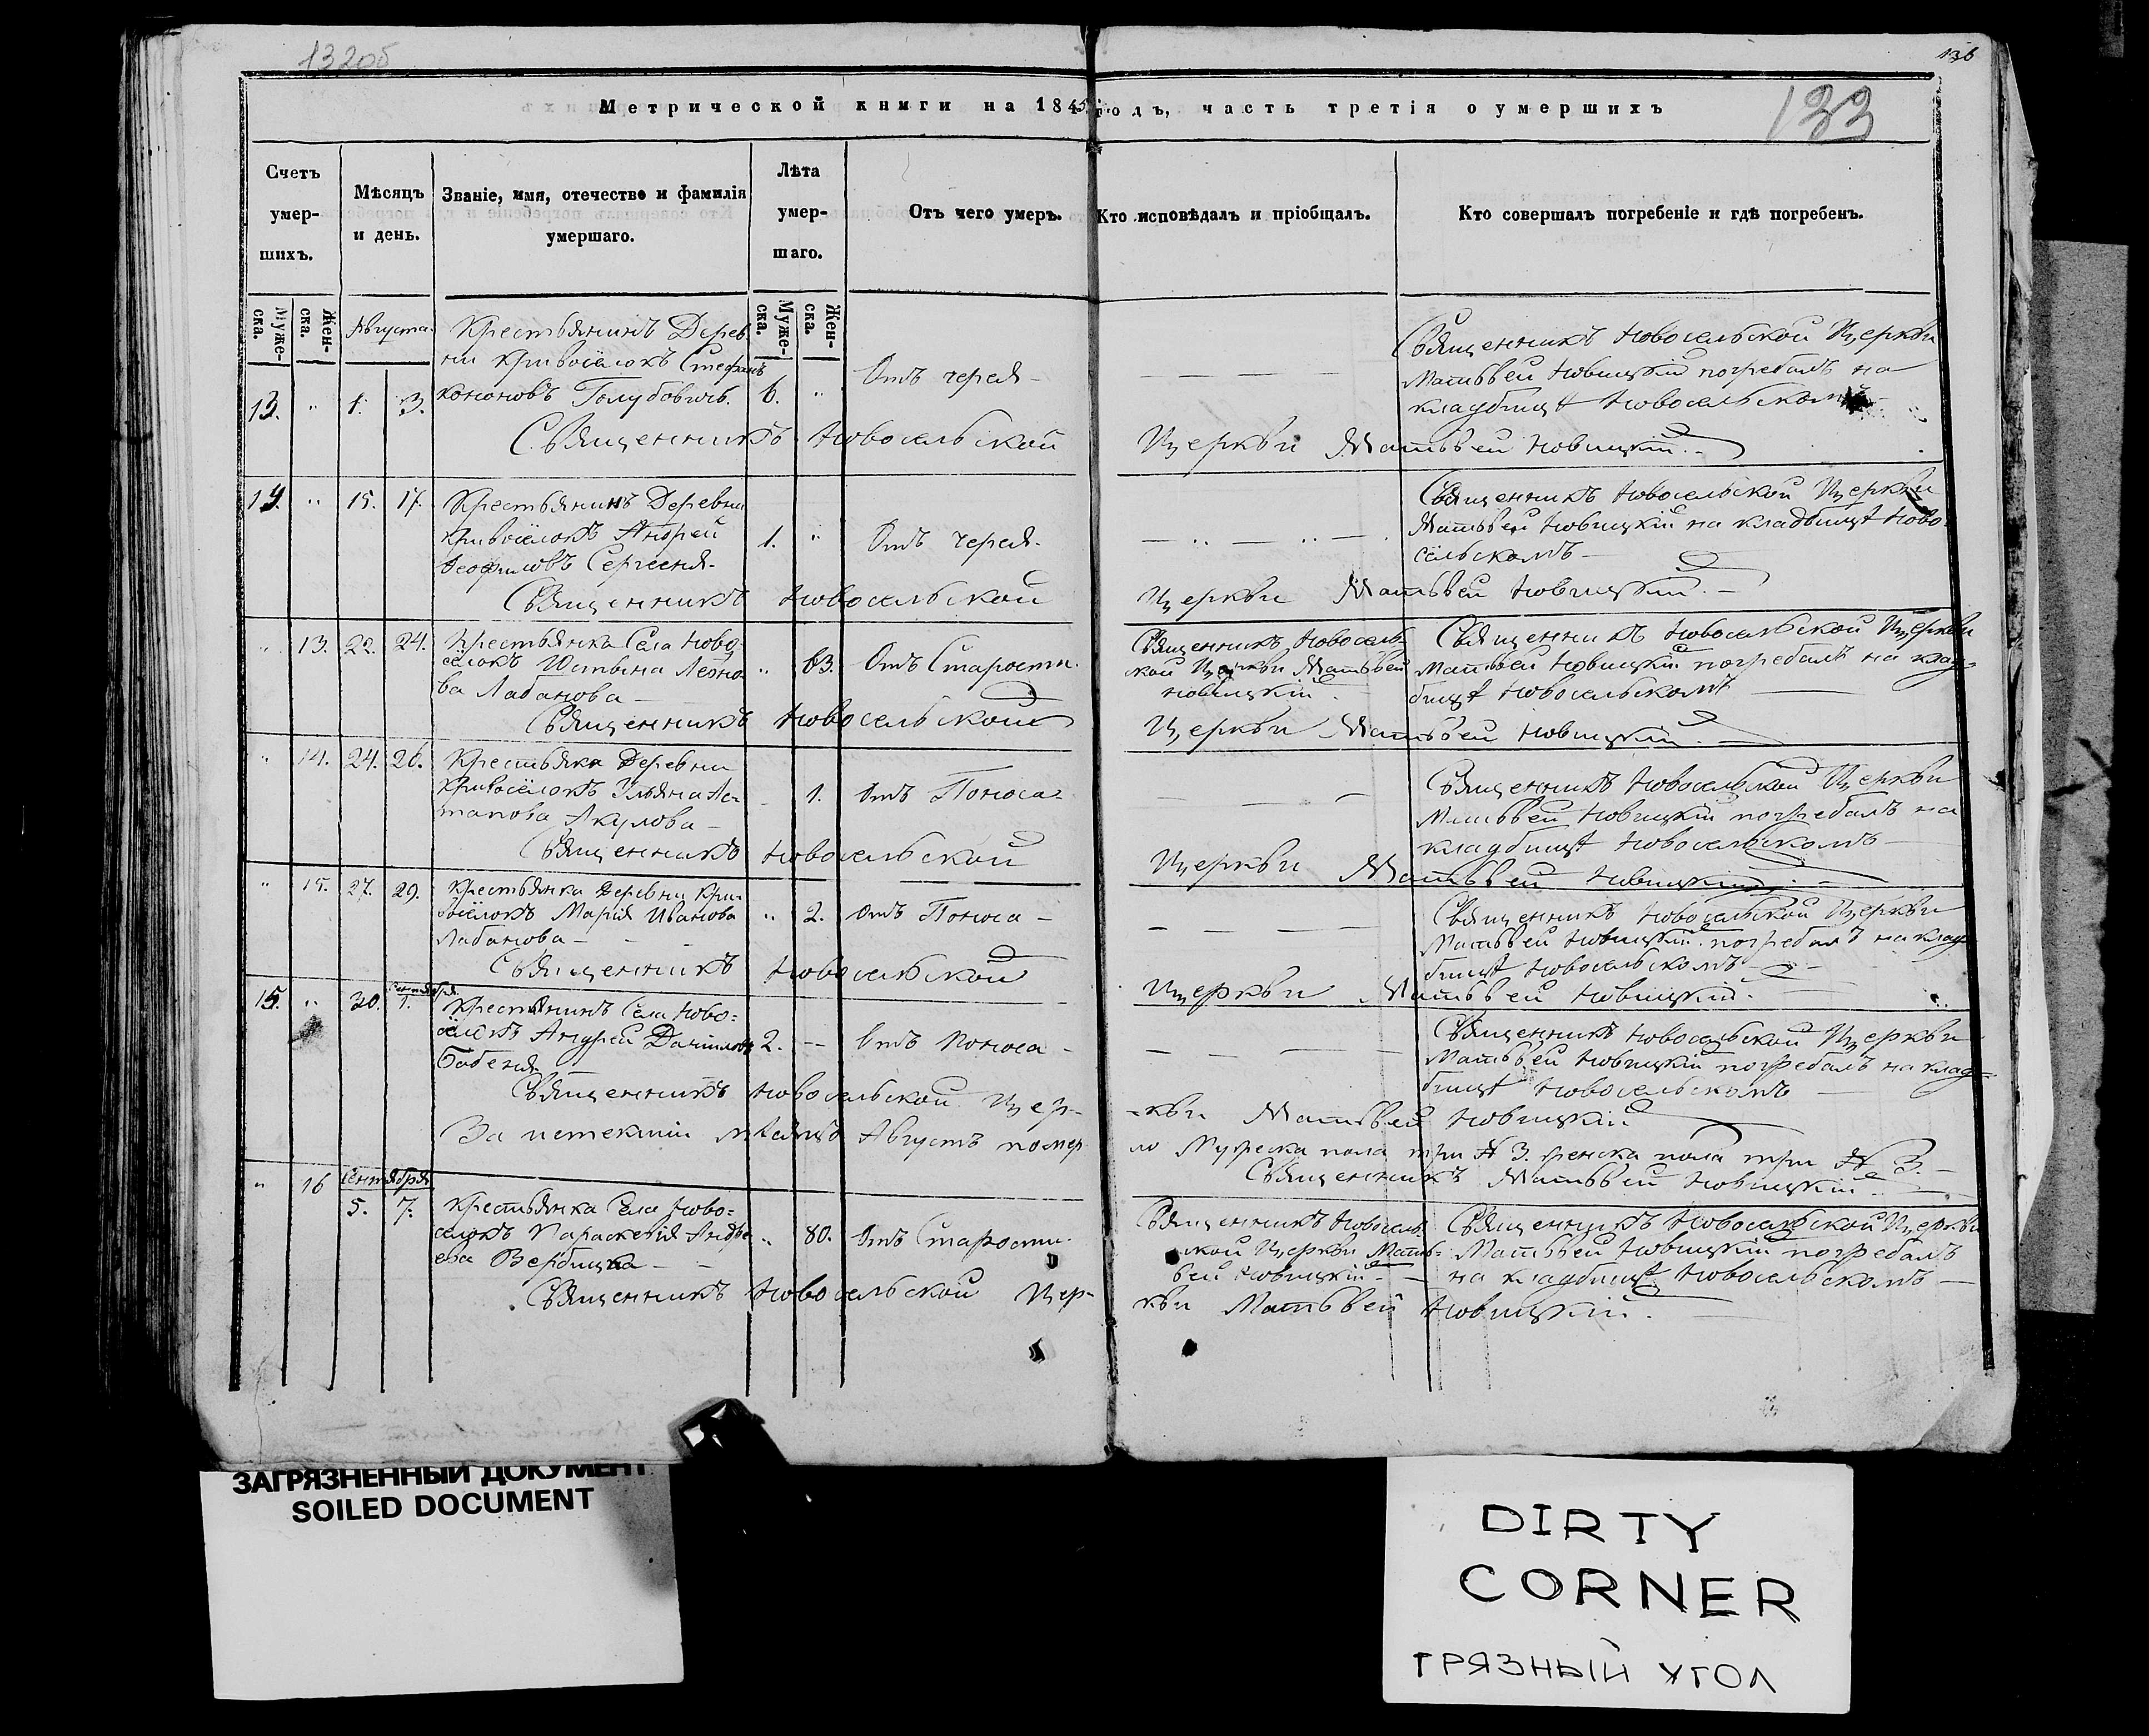 132об
136
133
Метрической книги на 1845 годъ, часть третія о умершихъ
Счетъ умер-шихъ.
Мѣсяцъ и день.
Званіе, имя, отечество и фамилія умершаго.
Лѣта умер-шаго.
Отъ чего умеръ.
Кто исповѣдалъ и пріобщалъ.
Кто совершалъ погребеніе и гдѣ погребенъ.
Муже-ска.
Жен-ска.
Муже-ска.
Жен-ска.
Августа
13. " 1. 3.
Крестьянинъ Дерев
ни Кривосёлокъ Стефанъ
Кононовъ Голубовичъ.
6. "
Отъ черея-
Священникъ Новосельской Церкви
Матѳвей Новицкій погребалъ на
кладбищѣ Новосельскомъ
Священникъ Новосельской Церкви Матѳвей Новицкій.
14. " 15. 17.
Крестьянинъ Деревни
Кривосёлокъ Андрей
Ѳеофиловъ Сергеения-
1. "
Отъ черея-
Священникъ Новосельской Церкви
Матѳвей Новицкій на кладбищѣ Ново-
сёльскомъ-
Священникъ Новосельской Церкви Матѳвей Новицкій.-
" 13. 22. 24.
Крестьянка Села Ново-
сёлокъ Устьина Леоно-
ва Лабанова-
" 83.
Отъ Старости.
Священникъ Новосель-
ской Церкви Матѳвей
Новицкій.
Священникъ Новосельской Церкви
Матѳвей Новицкій погребалъ на клад-
бищѣ Новосельскомъ
Священникъ Новосельской Церкви Матѳвей Новицкій.-
" 14. 24. 26.
Крестьянка Деревни
Кривосёлокъ Ульяна Ас-
тапова Акулова-
1.
Отъ Поноса-
Священникъ Новосельской Церкви
Матѳвей Новицкій погребалъ на
кладбищѣ Новосельскомъ-
Священникъ Новосельской Церкви Матѳвей Новицкій
" 15. 27. 29.
Крестьянка Деревни Кри-
восёлокъ Марія Иванова
Лабанова-
" 2.
Отъ Поноса-
Священникъ Новосельской Церкви
Матѳвей Новицкій погребалъ на клад-
бищѣ Новосельскомъ-
Священникъ Новосельской Церкви Матѳвей Новицкій.
15. " 30. Сентября 1.
Крестьянинъ Села Ново=
сёлокъ Андрей Даниловъ
Бабеня.
2. --
Отъ Поноса-
Священникъ Новосельской Церкви
Матѳвей Новицкій погребалъ на клад=
бищѣ Новосельскомъ
Священникъ Новосельской Цер- -кви Матѳвей Новицкій
За истекшій мѣсяцъ Августъ помер- ло Мужеска пола три № 3. женска пола три № 3.-
Священникъ Матѳвей Новицкій.
Сентября
" 16 5. 7.
Крестьянка Села Ново=
сёлокъ Параскевія Андре
ева Вербицка-
" 80.
Отъ Старости.
Священникъ Новосель-
ской Церкви Матѳ-
вей Новицкій-
Священникъ Новосельской Церкви
Матѳвей Новицкій погребалъ
на кладбищѣ Новосельскомъ-
Священникъ Новосельской Цер- кви Матѳвей Новицкій.
ЗАГРЯЗНЕННЫЙ ДОКУМЕНТ
SOILED DOCUMENT
DIRTY
CORNER
ГРЯЗНЫЙ УГОЛ